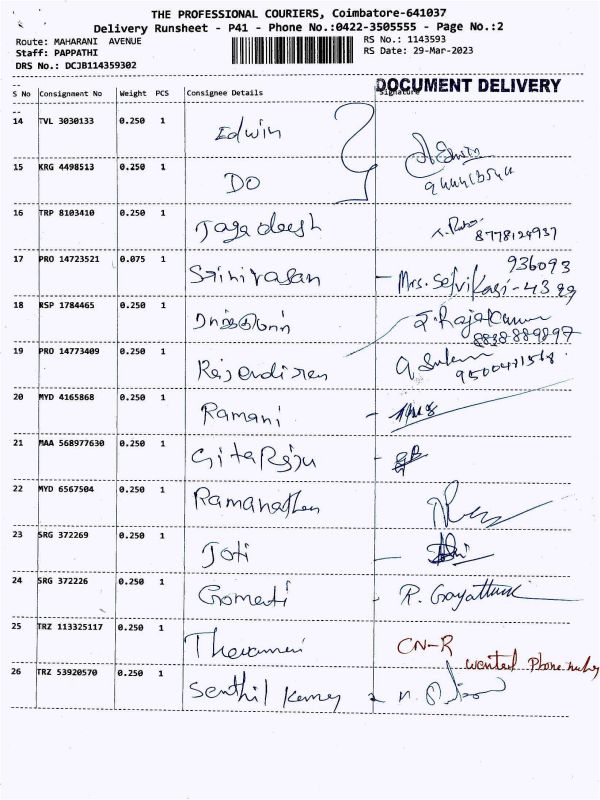 THE PROFESSIONAL COURIERS, Coimbatore-641037
Delivery Runsheet - P41 - Phone No.:0422-3505555 - Page No.:2
Route: MAHARANI AVENUE
RS No.: 1143593
Staff: PAPPATHI
RS Date: 29-Mar-2023
DRS No.: DCJB114359302
DOCUMENT DELIVERY
S No Consignment No Weight PCS Consignee Details Signature
14 TVL 3030133 0.250 1 Edwin
15 KRG 4498513 0.250 1 DO
16 TRP 8103410 0.250 1 Jagadeesh 8778124937
17 PRO 14723521 0.075 1 Srinivasan - Mrs. Selvi 936093
18 RSP 1784465 0.250 1 J. Rajakumar 8838889897
19 PRO 14773409 0.250 1 Rajendiren
20 MYD 4165868 0.250 1 Ramani -
21 MAA 568977630 0.250 1 Gita Raju -
22 MYD 6567504 0.250 1 Ramanathan
23 SRG 372269 0.250 1 Joti -
24 SRG 372226 0.250 1 Gomati - R. Gayathri
25 TRZ 113325117 0.250 1 CN-R wanted Phone
26 TRZ 53920570 0.250 1 Senthil Kumar